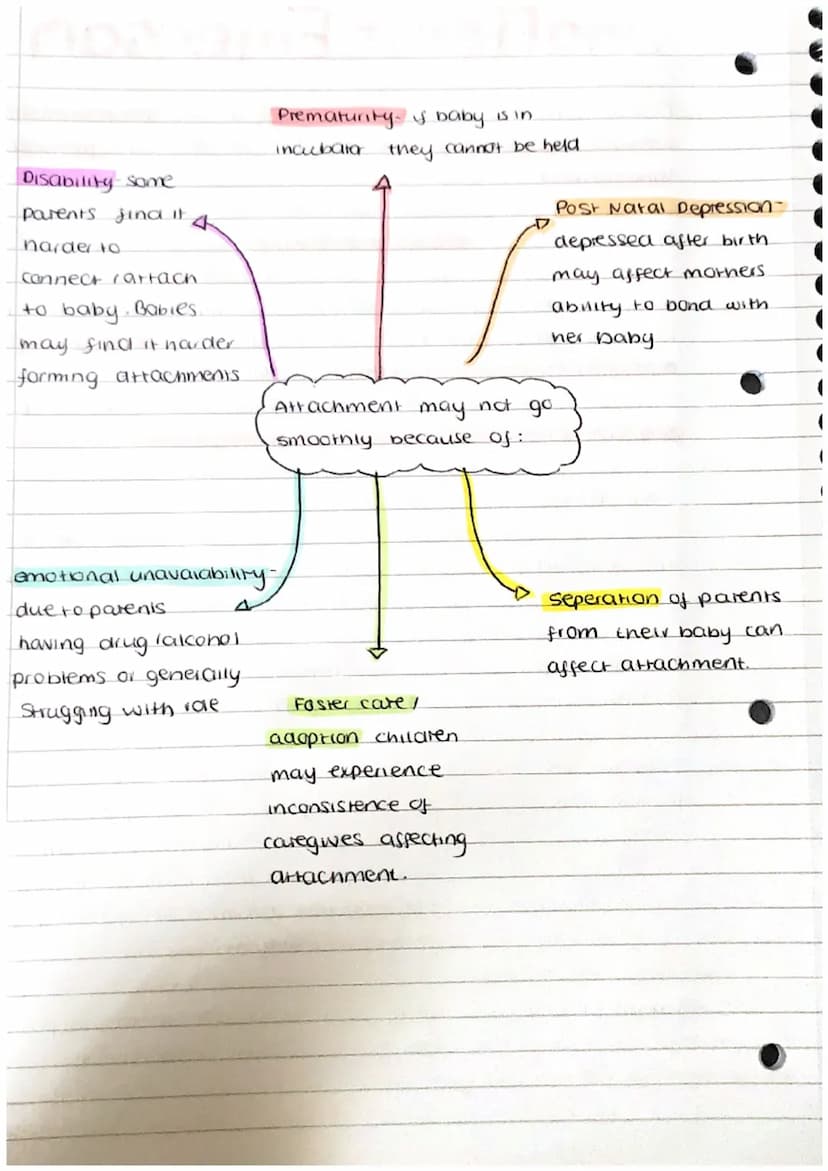 Prematurity- if baby is in
incubator they cannot be held
Disability some
parents find it
harder to
connect / attach
to baby. Babies
may find it harder
forming attachments
Post Natal Depression-
depressed after birth
may affect mothers
ability to bond with
her baby
Attachment may not go
smoothly because of:
emotional unavaiability-
due to parents
having drug / alcohol
problems or generally
strugging with role
Seperation of parents
from their baby can
affect attachment.
Foster care /
adoption children
may experience
inconsistence of
caregives affecting
attachment.